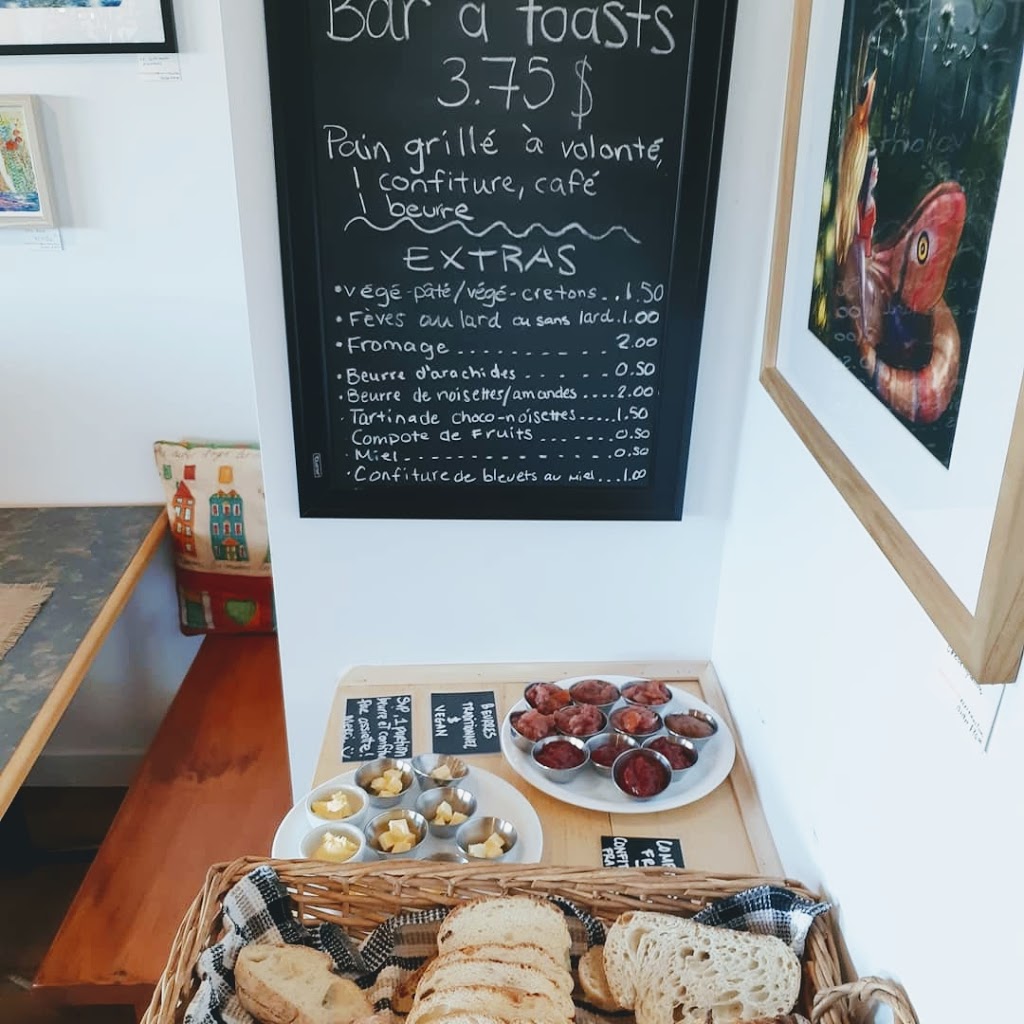 Bar à toasts
3.75 $
Pain grillé à volonté,
1 confiture, café
1 beurre
EXTRAS
• végé-pâté/végé-cretons...1.50
• Fèves au lard ou sans lard..1.00
• Fromage . . . . . . . . . . . . 2.00
• Beurre d'arachides . . . . . . 0.50
• Beurre de noisettes/amandes ....2.00
• Tartinade choco-noisettes.....1.50
Compote de Fruits ........0.50
• Miel....................0.50
• Confiture de bleuets au miel...1.00
SVP, 1 
beurre et
par assiette!
Merci
BEURRES
TRADITIONNEL
&
VEGAN